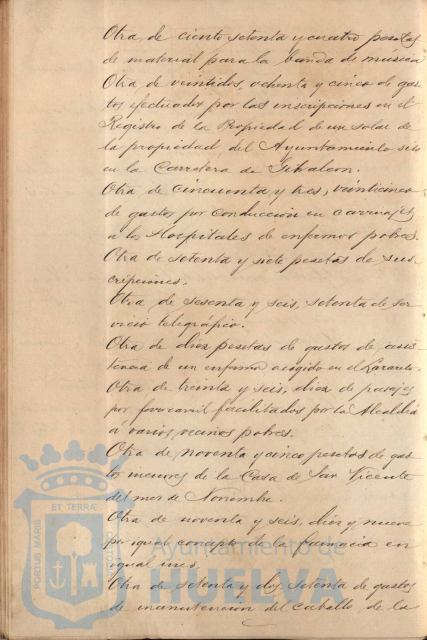 Otra de ciento setenta y cuatro pesetas
de material para la banda de música
Otra de veintidos, ochenta y cinco de gas
tos efectuados por las inscripciones en el
Registro de la Propiedad de un solar de
la propiedad del Ayuntamiento sito
en la Carretera de Gibraleon.
Otra de cincuenta y tres, veinticinco
de gastos por conduccion en carruajes
a los Hospitales de enfermos pobres.
Otra de setenta y siete pesetas de sus
cripciones.
Otra de sesenta y seis, setenta de ser
vicio telegráfico.
Otra de diez pesetas de gastos de asis
tencia de un enfermo acogido en el Lazareto.
Otra de treinta y seis, diez de pasajes
por ferrocarril facilitados por la Alcaldia
a varios vecinos pobres.
Otra de noventa y cinco pesetas de gas
tos menores de la Casa de San Vicente
del mes de Noviembre.
Otra de noventa y seis, diez y nueve
por igual concepto de la farmacia en
igual mes.
Otra de setenta y dos, setenta de gastos
de manutencion del caballo de la
PORTUS MARIS
ET TERRAE
Ayuntamiento de
HUELVA